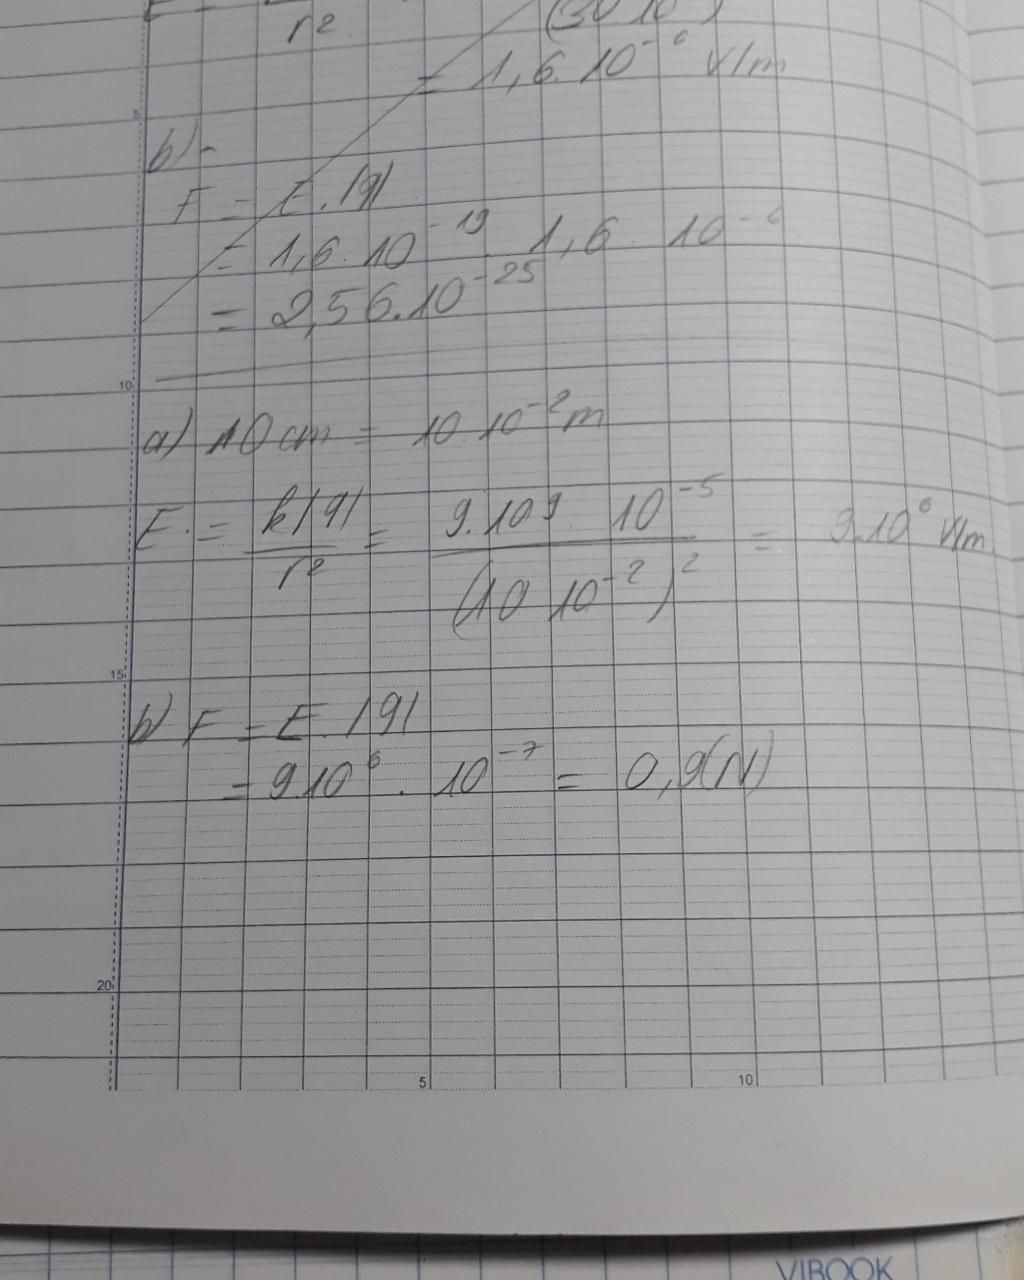 r²
= 1,6.10⁻⁶ V/m
b) -
F = E.|q|
= 1,6.10⁻¹⁹ . 1,6 10⁻⁶
= 2,56.10⁻²⁵
10
a) 10 cm = 10.10⁻² m
E = k|q|/r² = 9.10⁹ 10⁻⁵/(10 10⁻²)² = 9.10⁶ V/m
15
b) F = E.|q|
= 9.10⁶ . 10⁻⁷ = 0,9(N)
20
5 10
VIBOOK